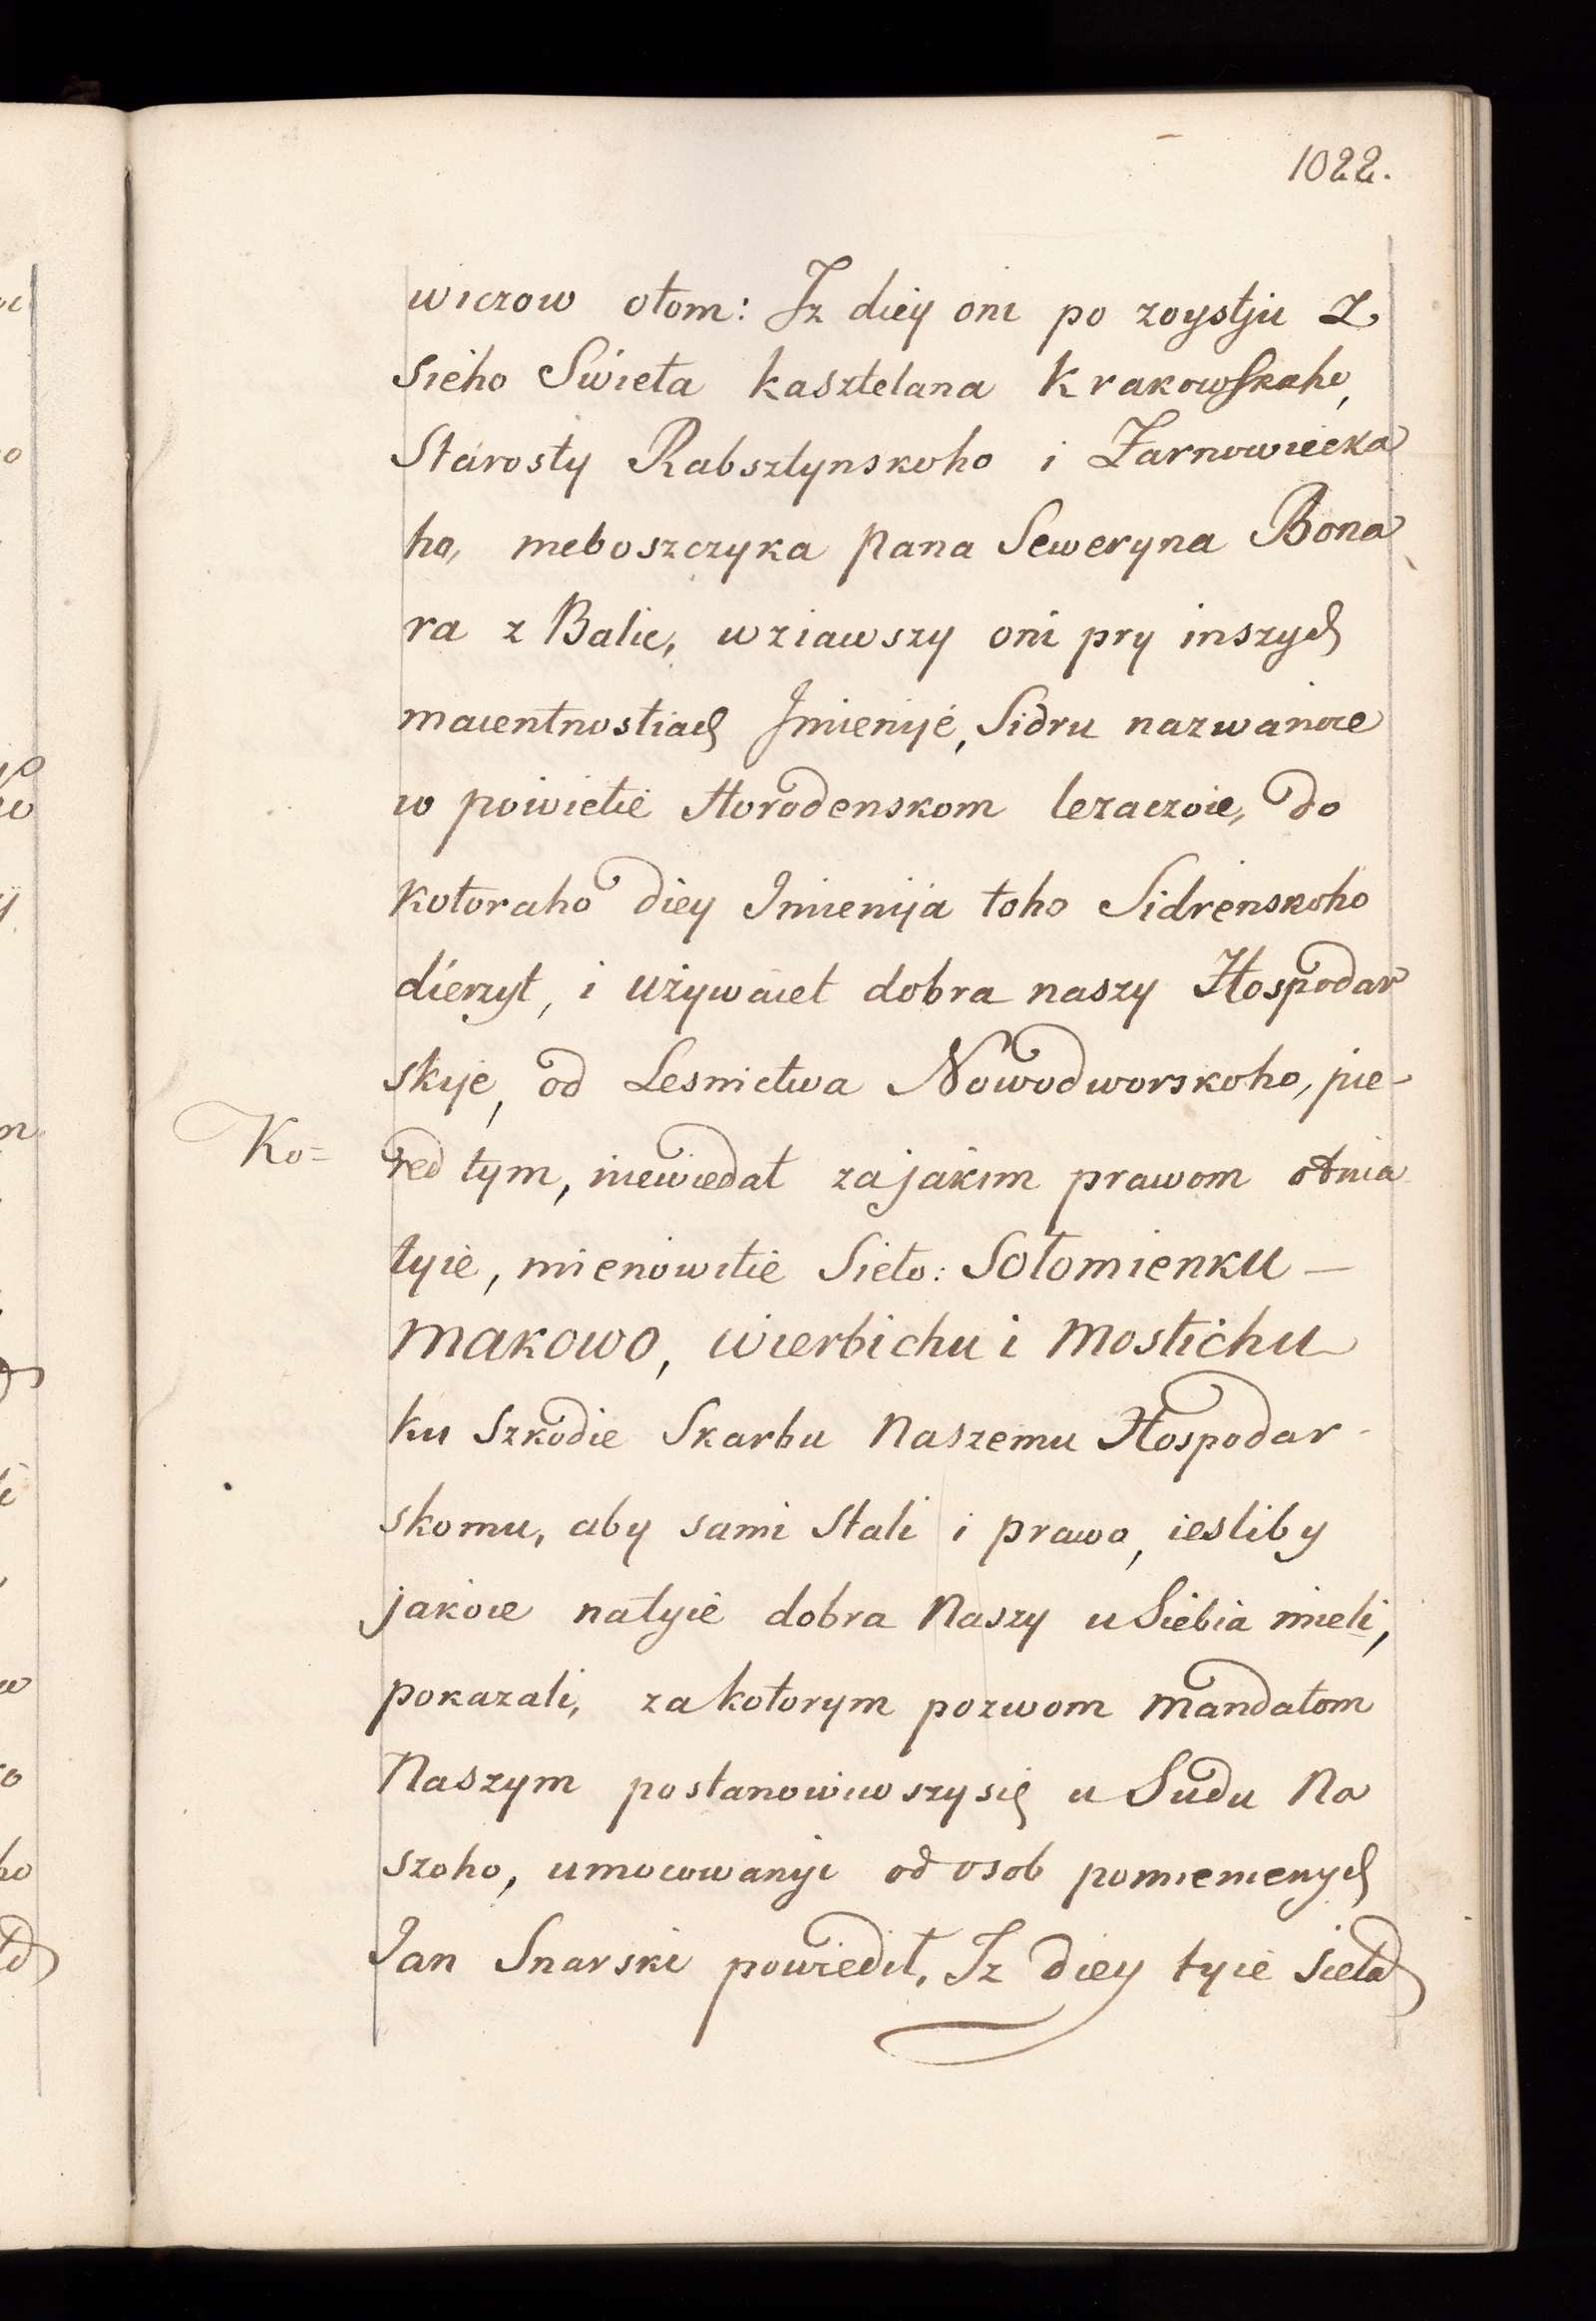 1022.
wiczow otom: Iz diey oni po zoystju z
sieho Swieta kasztelana Krakowskaho,
Starosty Rabsztynskoho i Żarnowiecka
ho, nieboszczyka pana Seweryna Bona
ra z Balic, wziawszy oni pry inszych
maientnostiach Imienije, Sidru nazwanoie
w powietie Horodenskom lezaczoie, do
kotoraho diey Imienija toho Sidrenskoho
dierzyt, i używaiet dobra naszy Hospodar
skije, od Lesnictwa Nowodworskoho, pie-
Ko= red tym, niewiedat zajakim prawom otnia
tyie, mienowitie Sieło: Sołomienku —
Makowo, Wierbichu i Mostichu
ku Szkodie Skarbu Naszemu Hospodar-
skomu, aby sami stali i prawo, iesliby
jakoie natyie dobra Naszy u Siebia mieli,
pokazali, za kotorym pozwom mandatom
Naszym postanowiwszysię u Sudu Na
szoho, umocowanyi od osob pomienienych
Jan Snarski powiedił, Iz diey tyie Sieła